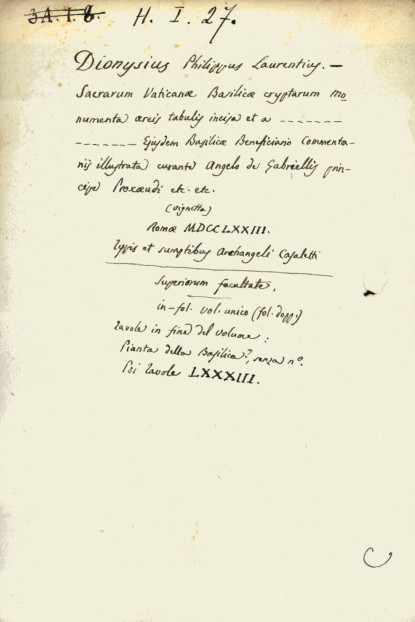 3A.1.8. H. I. 27.
Dionysius Philippus Laurentius. —
Sacrarum Vaticanæ Basilicæ cryptarum mo-
numenta æreis tabulis incisa et a - - - - - - -
- - - - - - - Ejusdem Basilicæ Beneficiario Commenta-
riis illustrata curante Angelo de Gabriellis prin-
cipe Prossedi etc. etc.
(vignetta)
Romæ MDCCLXXIII.
Typis et sumptibus Archangeli Casaletti
Superiorum facultate.
in-fol. vol. unico (fol. dopp.)
tavole in fine del volume:
Pianta della Basilica, senza nº.
Poi tavole LXXXIII.